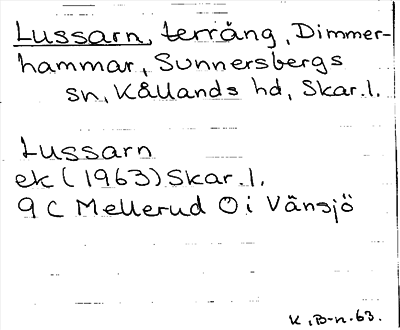 Lussarn, terräng, Dimmer-
hammar, Sunnersbergs
sn, Kållands hd, Skar.l.
Lussarn
ek (1963) Skar.l.
9 C Mellerud Ö i Vänsjö
K, B-n. 63.